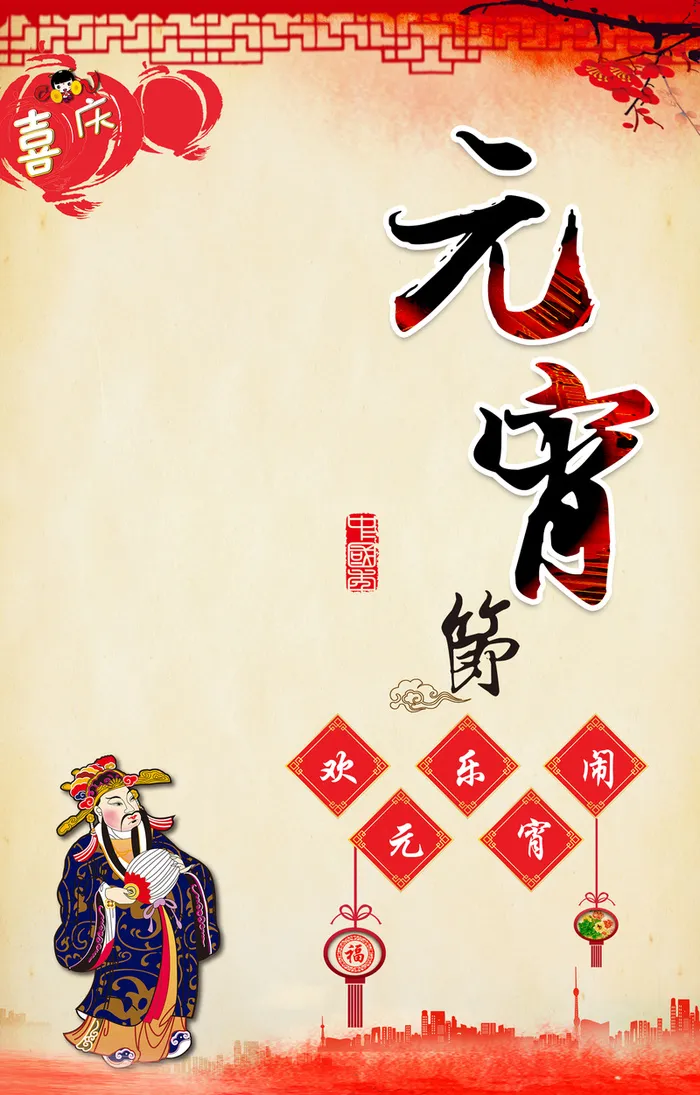 喜庆
元宵节
中國
欢乐闹
元宵
福